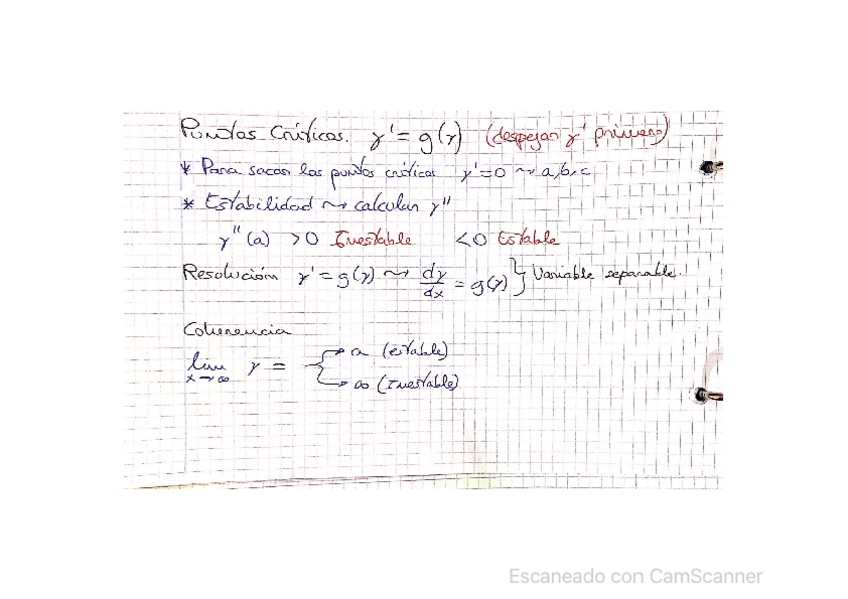 Puntos Críticos. y' = g(y) (despejar y' primero)
* Para sacar los puntos críticos y'=0 ⇝ a, b, c
* Estabilidad ⇝ calcular y''
y''(a) >0 Inestable <0 Estable
Resolución y' = g(y) ⇝ dy/dx = g(y) } Variable separable.
Coherencia
lim x→∞ y = { → a (estable)
→ ∞ (Inestable)
Escaneado con CamScanner